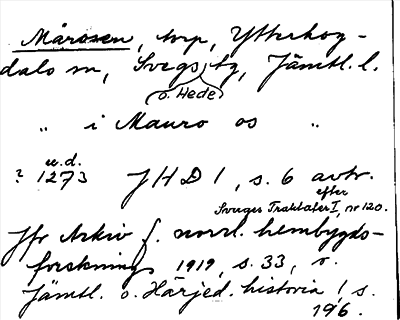 Mårosen, torp, Ytterhog-
dals sn, Svegs tg, Jämtl. l.
o. Hede
" i Mauro os "
u.d.
? 1273 JHD 1, s. 6 avtr.
efter
Sveriges Traktater I, nr 120.
Jfr Arkiv f. norrl. hembygds-
forskning 1919, s. 33, o.
Jämtl. o. Härjed. historia 1, s.
196.